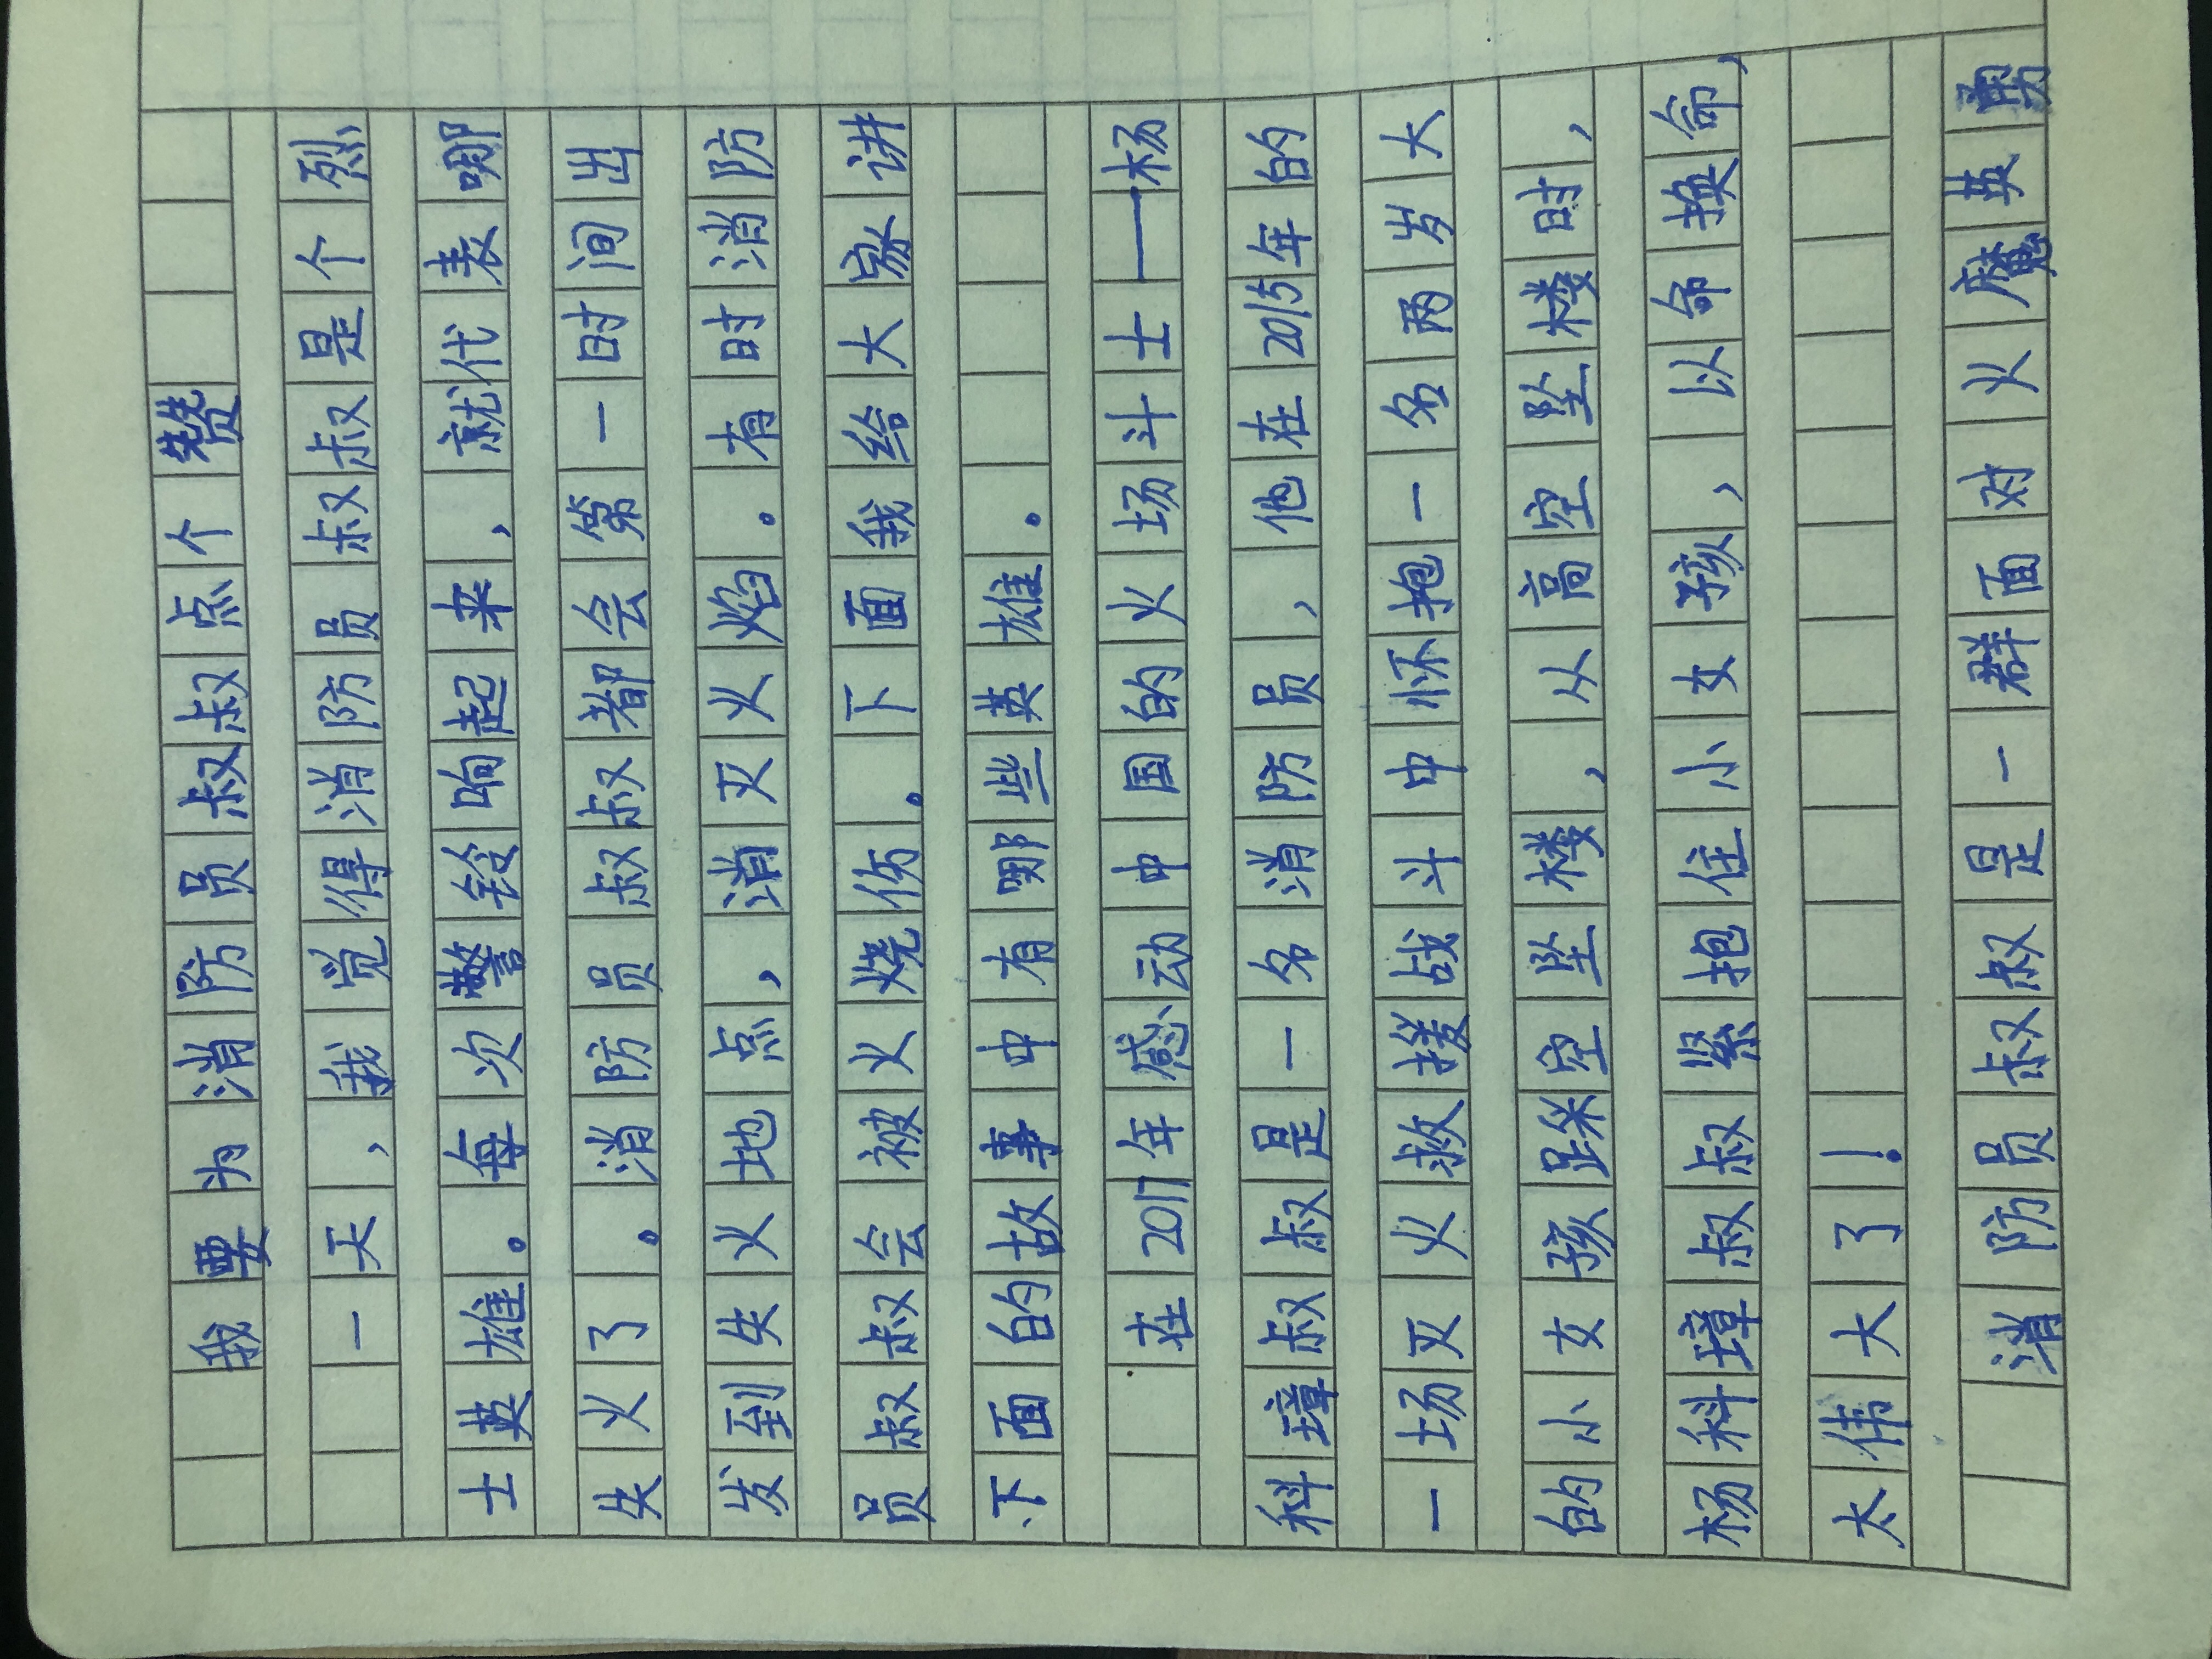 我要为消防员叔叔点个赞
一天，我觉得消防员叔叔是个烈
士英雄。每次警铃响起来，就代表哪
失火了。消防员叔叔都会第一时间出
发到失火地点，消灭火焰。有时消防
员叔叔会被火烧伤。下面我给大家讲
下面的故事中有哪些英雄。
在2017年感动中国的火场斗士——杨
科璋叔叔是一名消防员，他在2015年的
一场灭火救援战斗中怀抱一名两岁大
的小女孩踩空坠楼，从高空坠楼时，
杨科璋叔叔紧抱住小女孩，以命换命，
太伟大了！
消防员叔叔是一群面对火魔英勇